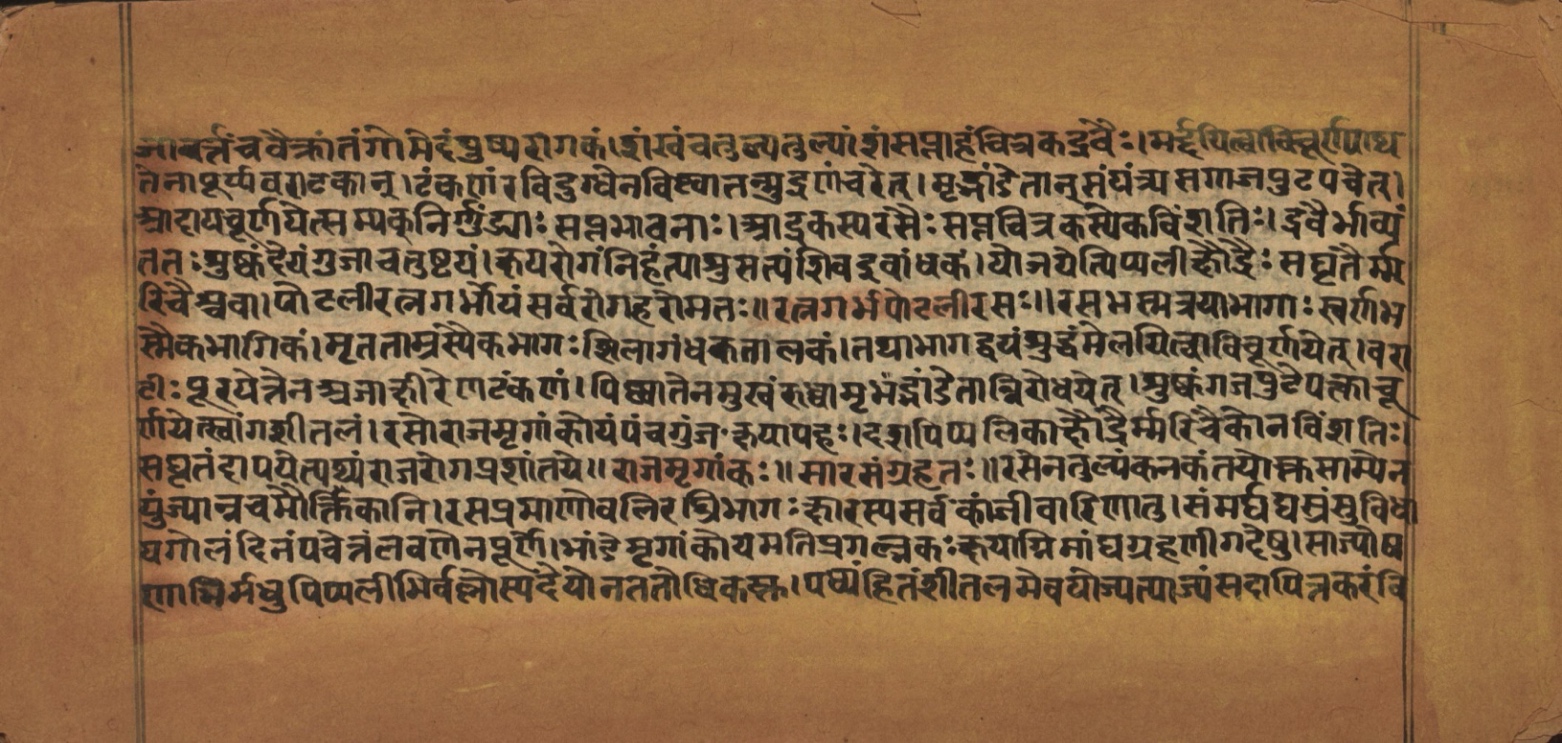 मावर्त्तंचवैक्रांतंगोमेदंपुष्परागकं।शंखंचतुल्यतुल्यांशंसप्ताहंचित्रकद्रवैः।मर्द्दयित्वाविचूर्णपाथ
तेनापूर्य्यवराटकान्।टंकणंरविदुग्धेनविष्ट्वातन्मुद्रणंचरेत्।मृद्भांडेतान्संयंत्र्यसगाजपुटपचेत्।
आदायचूर्णयेत्सम्यक्निर्गुंड्याःसप्तभावनाः।आद्रकस्यरसैःसप्तचित्रकस्यैकविंशतिः।द्रवैर्भाव्यं
ततःशुष्कंदेयंगुंजाचतुष्टयं।क्षयरोगंनिहंत्याशुसत्यंशिवद्रवांधकं।योजयेत्पिप्पलीक्षौद्रैःसघृतैर्म्म
रिचैश्चवा।पोटलीरत्नगर्भोयंसर्वरोगहरोमतः॥रत्नगर्भपोटलीरसः॥रसभस्मत्रयोभागाःस्वर्णभ
स्मैकभागिकं।मृतताम्रस्यैकभागःशिलागंधकतालकं।तथाभागद्वयंशुद्धंमेलयित्वाविचूर्णयेत्।वरा
टीःपूरयेत्तेनअजाक्षीरेणटंकणं।पिष्ट्वातेनमुखंरुध्वामृभंद्भांडेतान्निरोधयेत्।शुष्कंगजपुटेपक्त्वाचू
र्णयेत्स्वांगशीतलं।रसोराजमृगांकोयंपंचगुंजःक्षयापहः।दशपिप्पलिकाक्षौद्रैर्म्मरिचैकोनविंशतिः।
सघृतंदापयेत्पथ्यंराजरोगप्रशांतये॥राजमृगांकः॥सारसंग्रहतः॥रसेनतुल्यंकनकंतयोस्तुसाम्येन
युंज्यान्नचमौक्तिकानि।रसप्रमाणोवलिरंघ्रिभागःक्षारस्यसर्वकांजीवारिणातु।संमर्घघस्रंसुविधा
यगोलंदिनंपचेत्तंलवणेनपूर्णे।भांडेमृगांकोयमतिप्रगल्भकःक्षयाग्निमांघग्रहणीगदेषु।साज्योष
णाभिर्मधुपिप्पलीभिर्वल्लोस्यदेयोनततोधिकस्तु।पथ्यंहितंशीतलमेवयोज्यत्याज्यंसदापित्तकरंवि